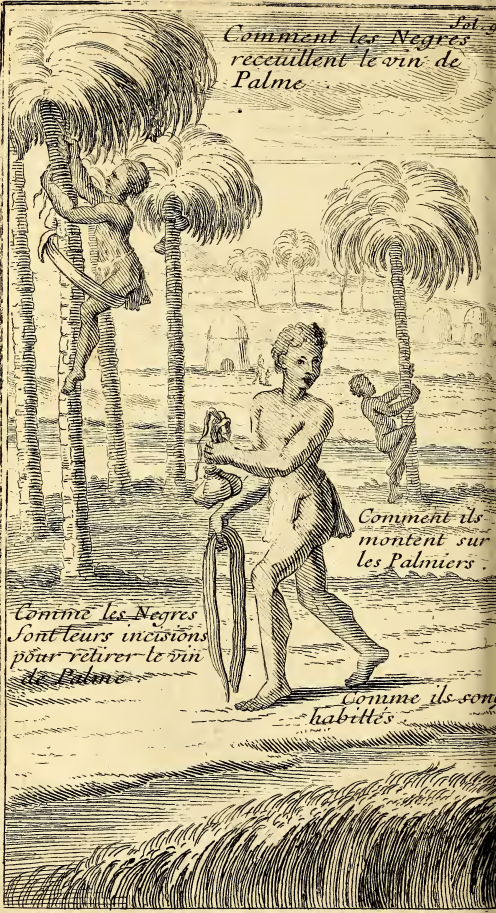 fol. 9
Comment les Negres
receuillent le vin de
Palme.
Comment ils
montent sur
les Palmiers.
Comme les Negres
font leurs incisions
pour retirer le vin
de Palme
Comme ils sont
habittés.